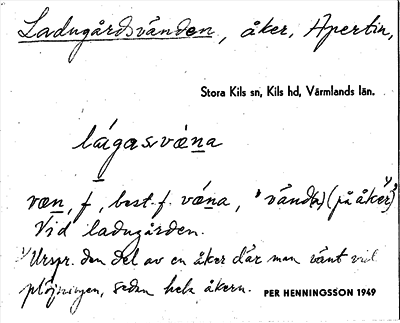 Ladugårdsvänden, åker, Apertin,
Stora Kils sn, Kils hd, Värmlands län.
lágasvæna
væn, f, best. f. væna, 'vänd(e) (på åker)'
Vid ladugården.
1) Urspr. den del av en åker där man vänt vid
plöjningen, sedan hela åkern. PER HENNINGSSON 1949